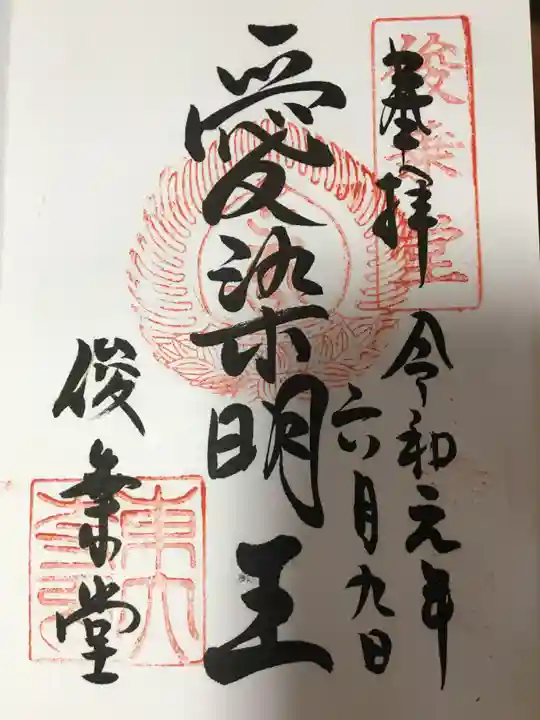 奉拝
俊乗堂
令和元年
六月九日
愛染明王
俊乗堂
東大寺印